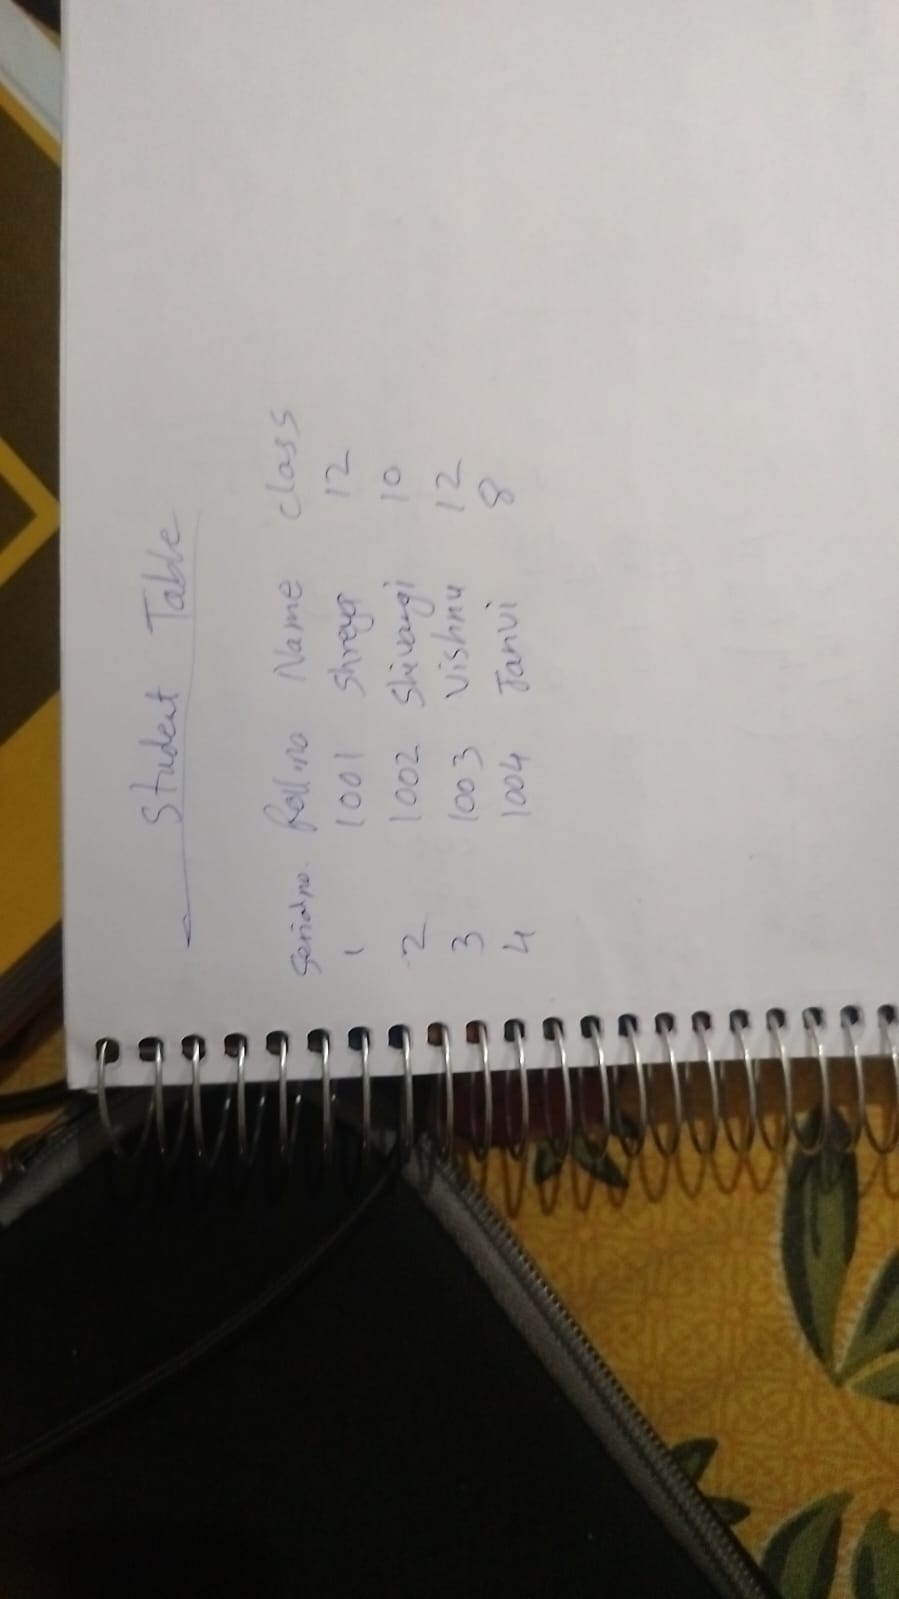 Student Table
Serial no. Roll no Name class
1 1001 Shreya 12
2 1002 Shivangi 10
3 1003 Vishnu 12
4 1004 Janvi 8